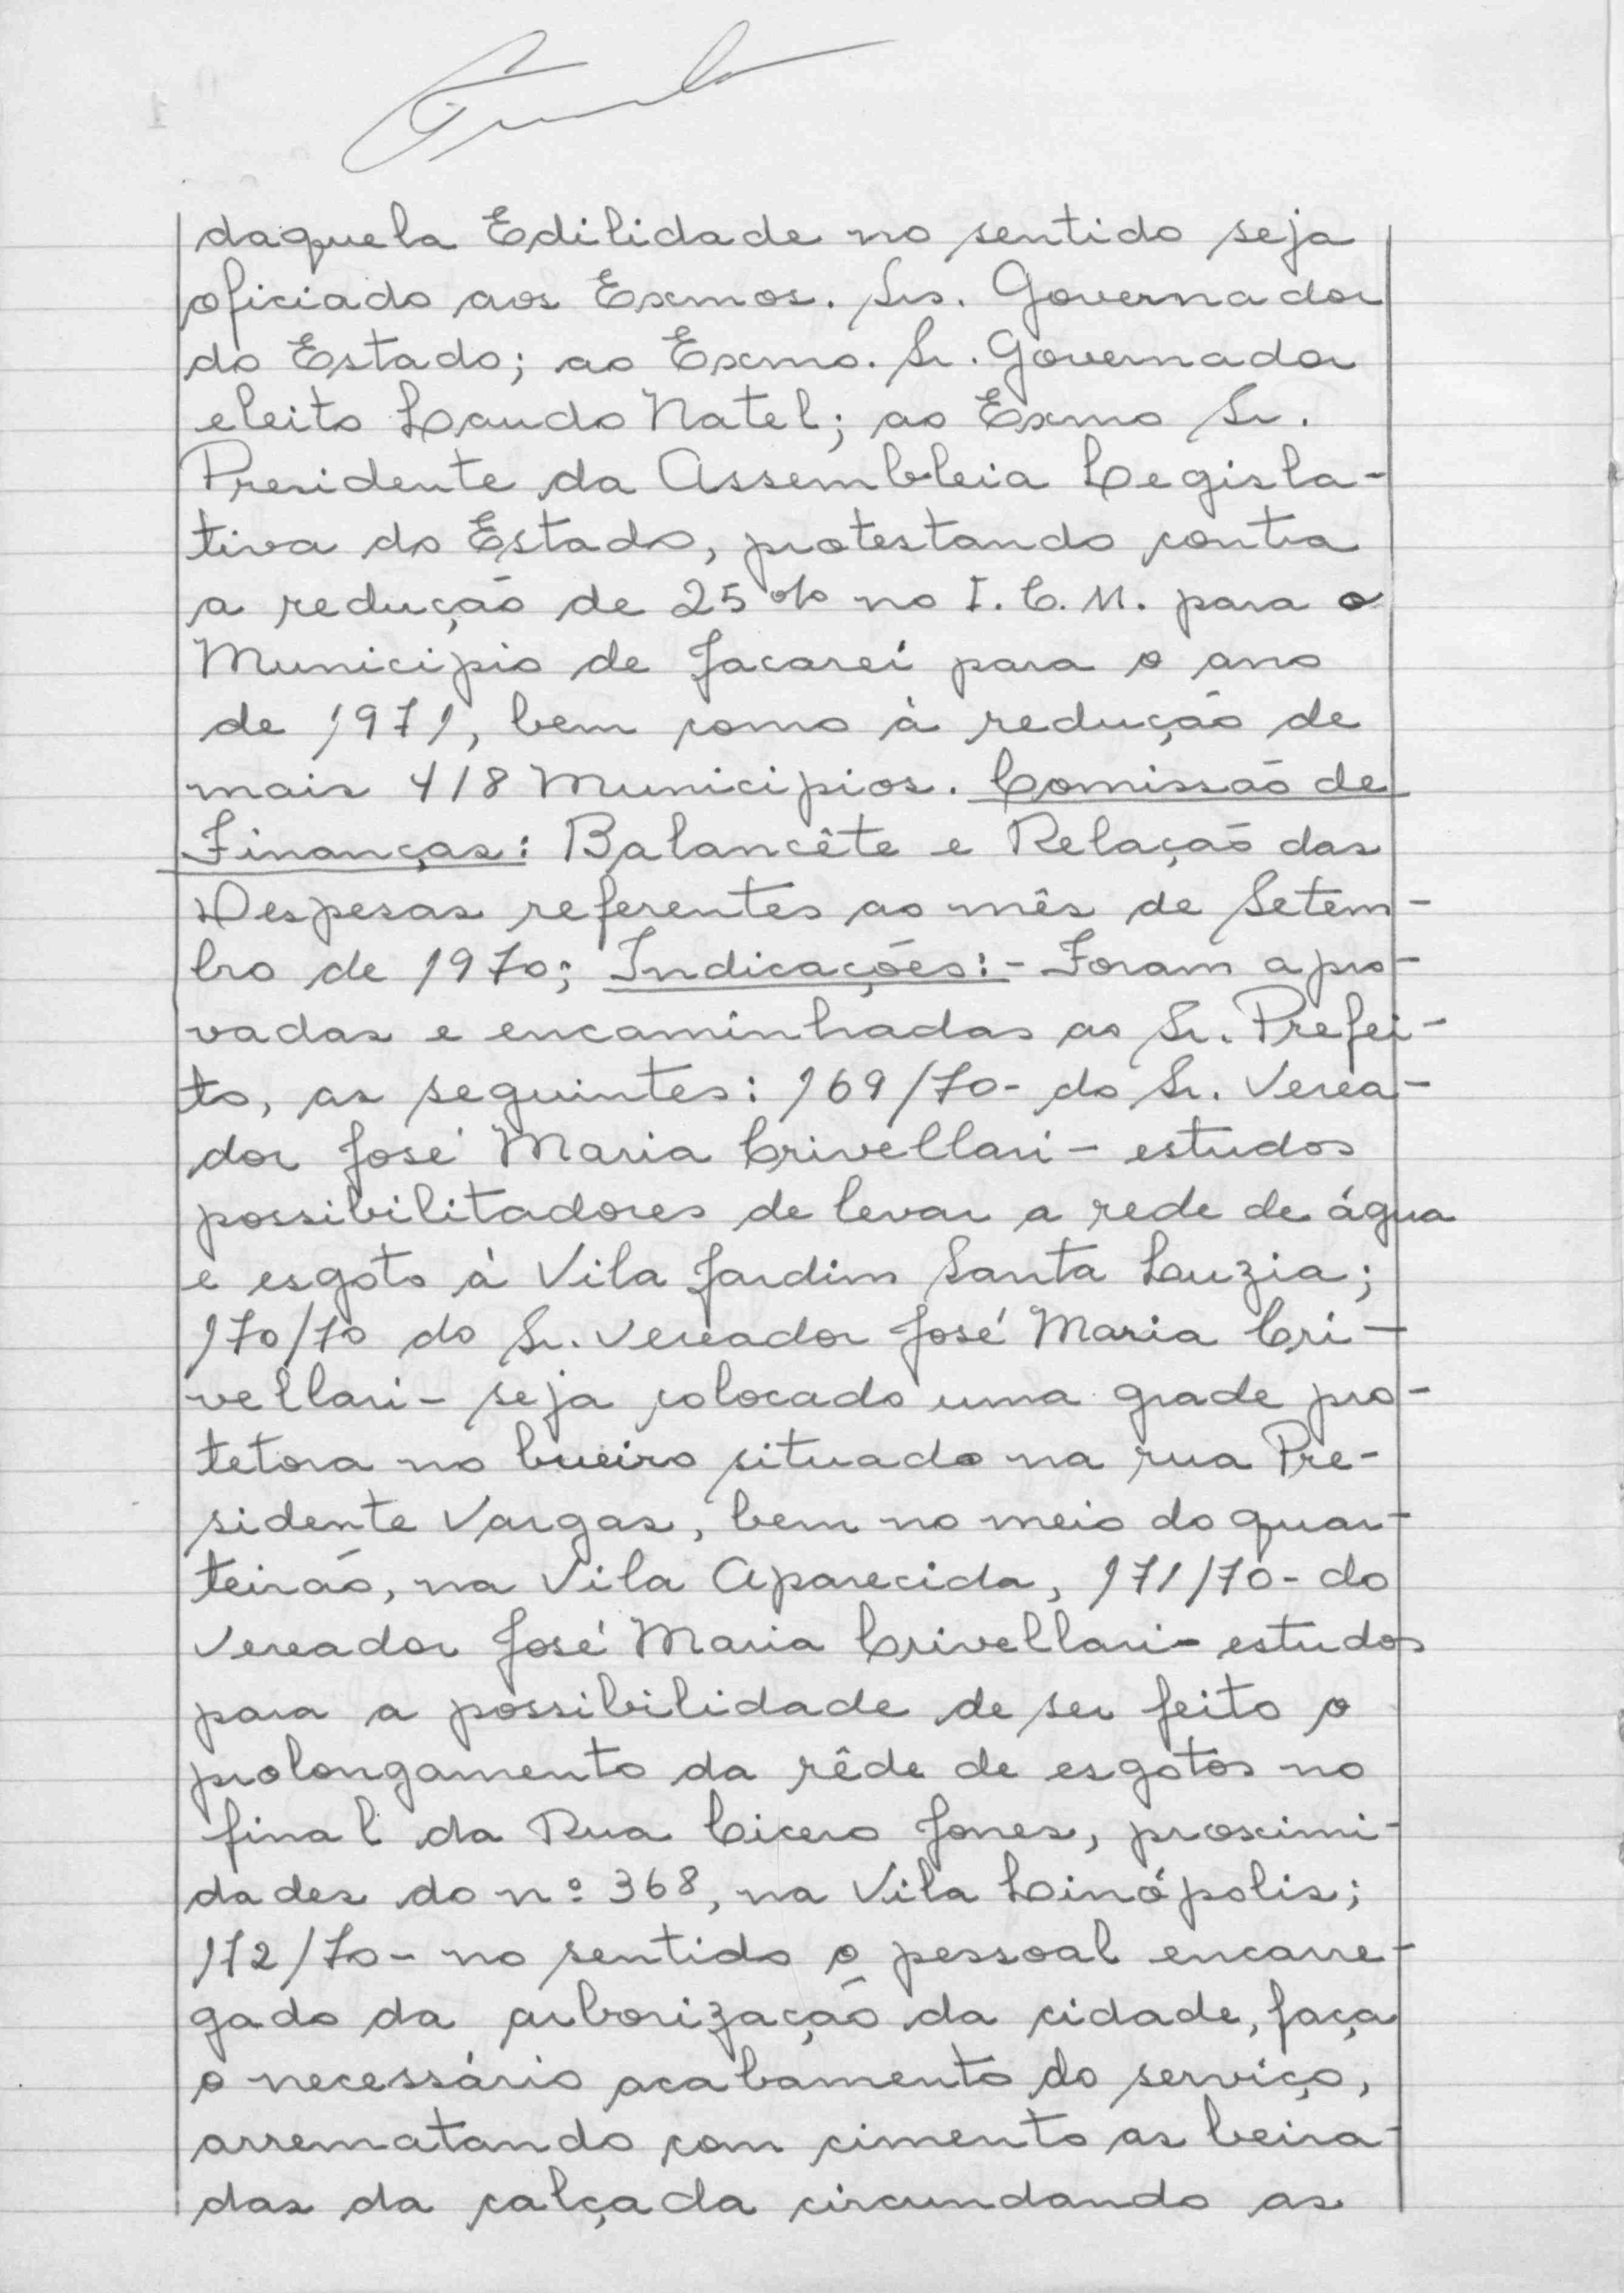 daquela Edilidade no sentido seja
oficiado aos Exmos. Srs. Governador
do Estado; ao Exmo. Sr. Governador
eleito Laudo Natel; ao Exmo Sr.
Presidente da Assembleia Legisla-
tiva do Estado, protestando contra
a redução de 25% no I.C.M. para o
Municipio de Jacareí para o ano
de 1971, bem como à redução de
mais 418 Municipios. Comissão de
Finanças: Balancête e Relação das
Despesas referentes ao mês de Setem-
bro de 1970; Indicações:- Foram apro-
vadas e encaminhadas ao Sr. Prefei-
to, as seguintes: 169/70- do Sr. Verea-
dor José Maria Crivellari - estudos
possibilitadores de levar a rede de água
e esgoto à Vila Jardim Santa Luzia;
170/70 do Sr. Vereador José Maria Cri-
vellari - seja colocado uma grade pro-
tetora no bueiro situado na rua Pre-
sidente Vargas, bem no meio do quar-
teirão, na Vila Aparecida, 171/70- do
Vereador José Maria Crivellari - estudos
para a possibilidade de ser feito o
prolongamento da rêde de esgotos no
final da Rua Cicero Jones, proximi-
dades do nº 368, na Vila Linópolis;
172/70- no sentido o pessoal encarre-
gado da arborização da cidade, faça
o necessário acabamento do serviço,
arrematando com cimento as beira-
das da calçada circundando as